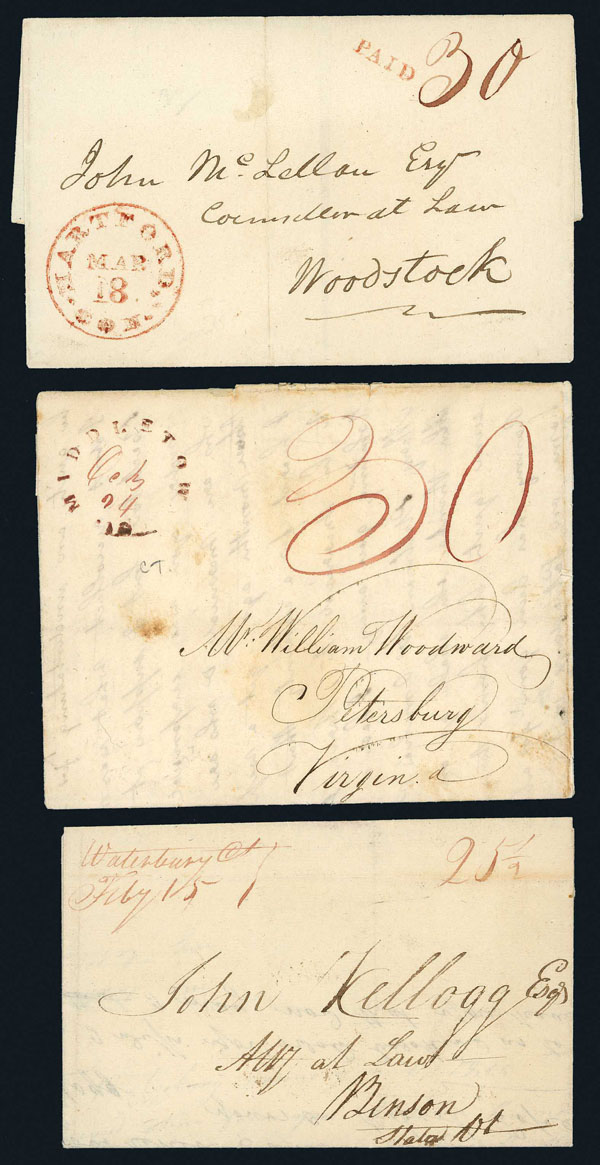 PAID 30
John Mc.Lellan Esqr
Counsellor at Law
Woodstock
HARTFORD. CON.
MAR
18
MIDDLETOWN
Feb
24
CT.
30
Mr. William Woodward
Petersburg
Virginia
Waterbury Ct
Feby 15
25 1/2
John Kellogg Esqr
Atty at Law
Benson
State Vt